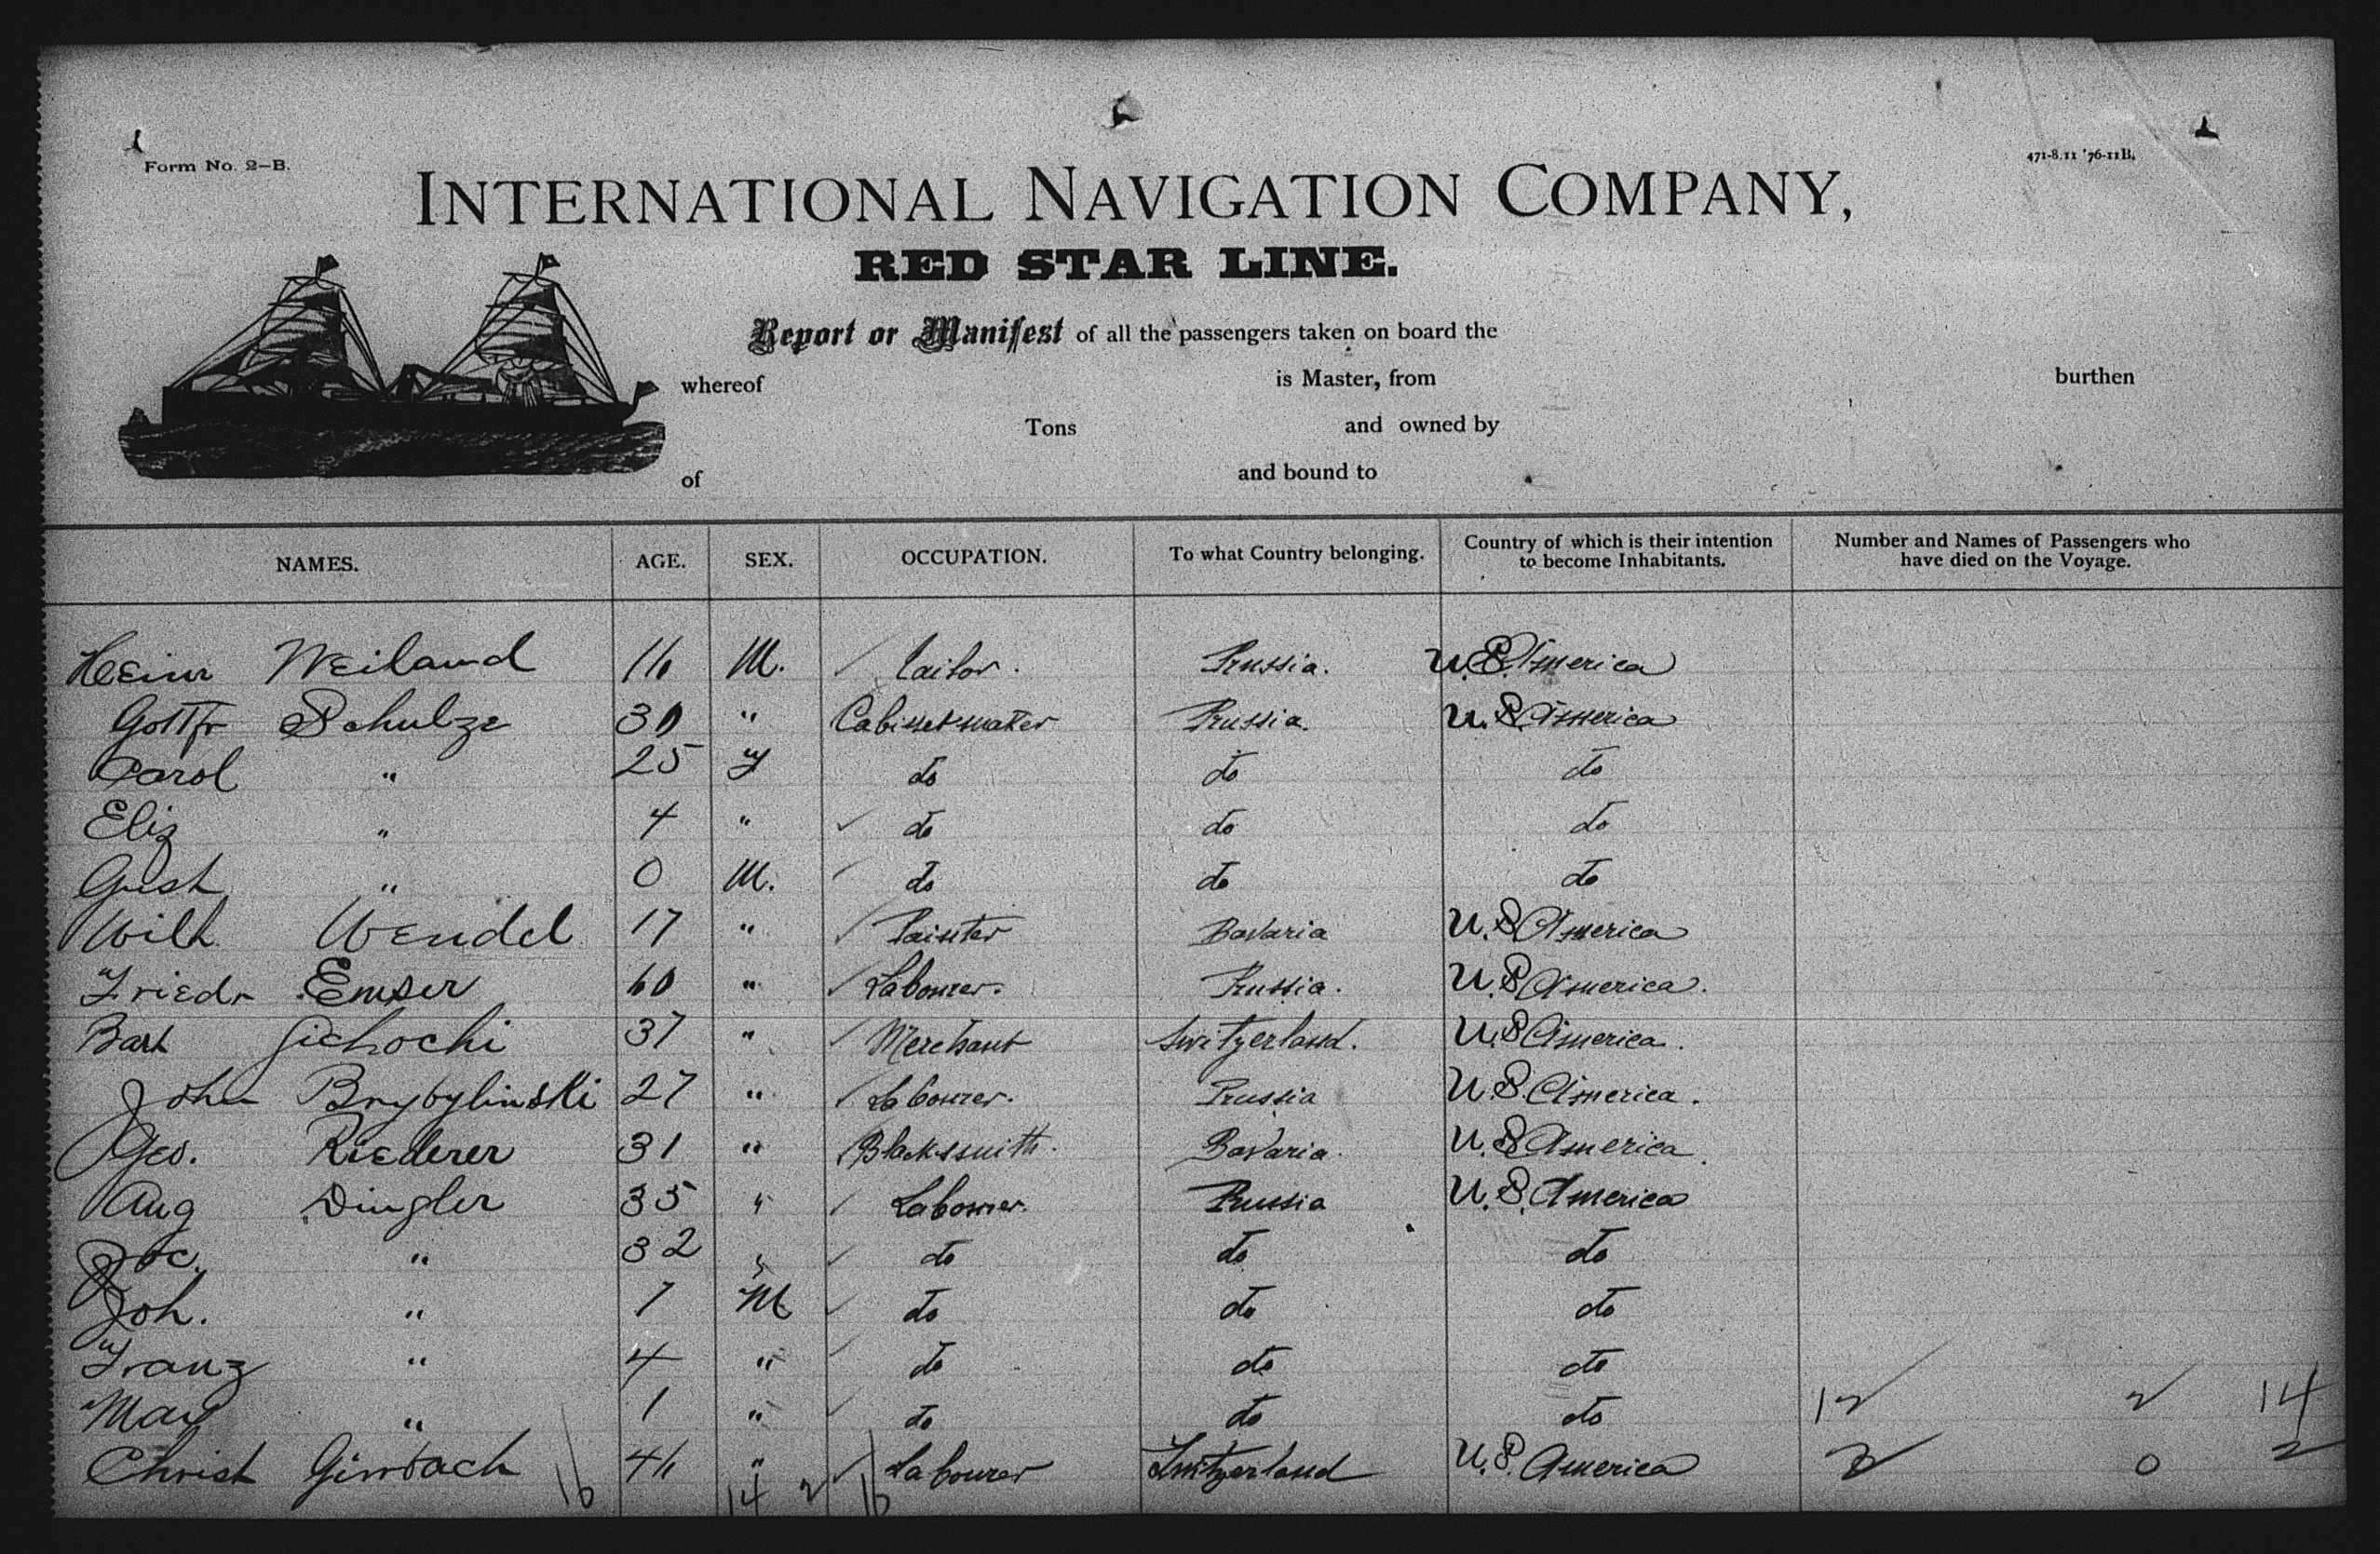 Form No. 2-B.
471-8.11 '76-11B.
INTERNATIONAL NAVIGATION COMPANY,
RED STAR LINE.
Report or Manifest of all the passengers taken on board the
whereof is Master, from burthen
Tons and owned by
of and bound to
NAMES. AGE. SEX. OCCUPATION. To what Country belonging. Country of which is their intention to become Inhabitants. Number and Names of Passengers who have died on the Voyage.
Heinr Weiland 16 M. Tailor. Prussia. U.S. America
Gottfr Schulze 30 " Cabinetmaker Prussia. U.S. America
Carol " 25 F do do do
Eliz " 4 " do do do
Gust " 0 M. do do do
Wilh Wendel 17 " Painter Bavaria U.S. America
Friedr Emser 60 " Labourer. Prussia. U.S. America.
Bart Gichochi 37 " Merchant Switzerland. U.S. America.
John Brybylinski 27 " Labourer. Prussia U.S. America.
Geo. Riederer 31 " Blacksmith. Bavaria. U.S. America.
Aug Dingler 35 " Labourer. Prussia U.S. America
32 do do do
Joh. " 7 M do do do
Franz " 4 " do do do
Max " 1 " do do do 12 2 14
Christ 46 " Labourer Switzerland U.S. America 2 0 2
16 14 2 16